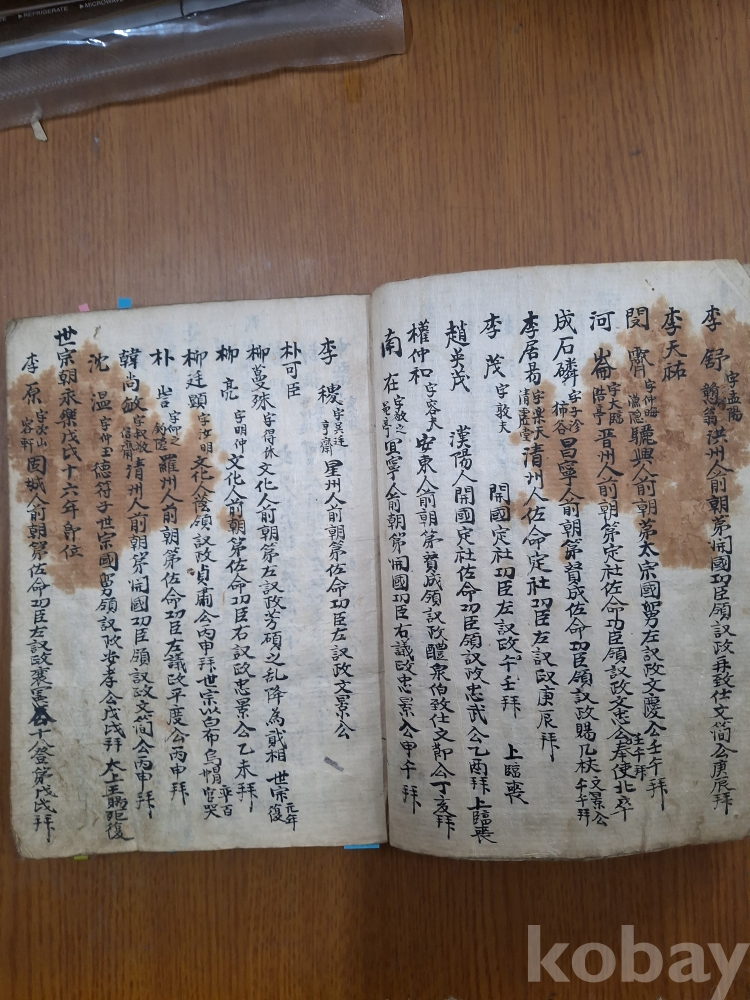 REFRIGERATE ▸MICROWAVE
李舒 字孟陽 戇翁 洪州人前朝第開國功臣領議政再致仕文簡公庚辰拜
李天祐
閔霽 字仲晦 漁隱 驪興人前朝第太宗國舅左議政文度公壬午拜
河崙 字大臨 浩亭 晋州人前朝第定社佐命功臣領議政文忠公奉使北卒 壬午拜
成石璘 字子修 柿谷 昌寧人前朝第贊成佐命功臣領議政賜几杖 文景公
李居易 字樂天 清虛堂 清州人佐命定社功臣左議政庚辰拜
李茂 字敦夫 開國定社功臣左議政午壬拜 上臨喪
趙英茂 漢陽人開國定社佐命功臣領議政忠武公乙酉拜 上臨喪
權仲和 字容夫 安東人前朝第贊成領議政醴泉伯致仕文節公丁亥拜
南在 字敬之 龜亭 宜寧人前朝第開國功臣右議政忠景公甲午拜
李稷 字吳廷 亨齋 星州人前朝第佐命功臣左議政文景公
朴可臣
柳蔓殊 字得休 文化人前朝第左議政芳碩之乱降為貳相 世宗元年復
柳亮 字明仲 文化人前朝第佐命功臣右議政忠景公乙未拜
柳廷顯 字汝明 文化人蔭領議政貞肅公丙申拜世宗以白布烏帽率百官哭
朴訔 字仰之 釣隱 羅州人前朝第佐命功臣左議政平度公丙申拜
韓尚敬 字叔敬 信齋 清州人前朝第開國功臣領議政文簡公丙申拜
沈溫 字仲玉 德符子世宗國舅領議政安孝公戊戌拜 太上王賜死復
世宗朝永樂戊戌十六年即位
李原 字次山 容軒 固城人前朝第佐命功臣左議政襄憲公十八登第戊戌拜
kobay